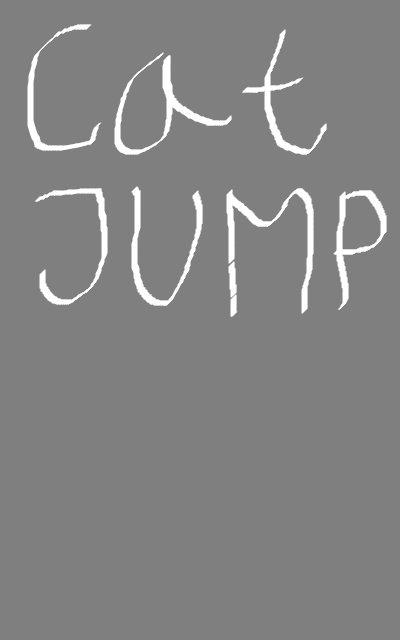 Cat
JUMP